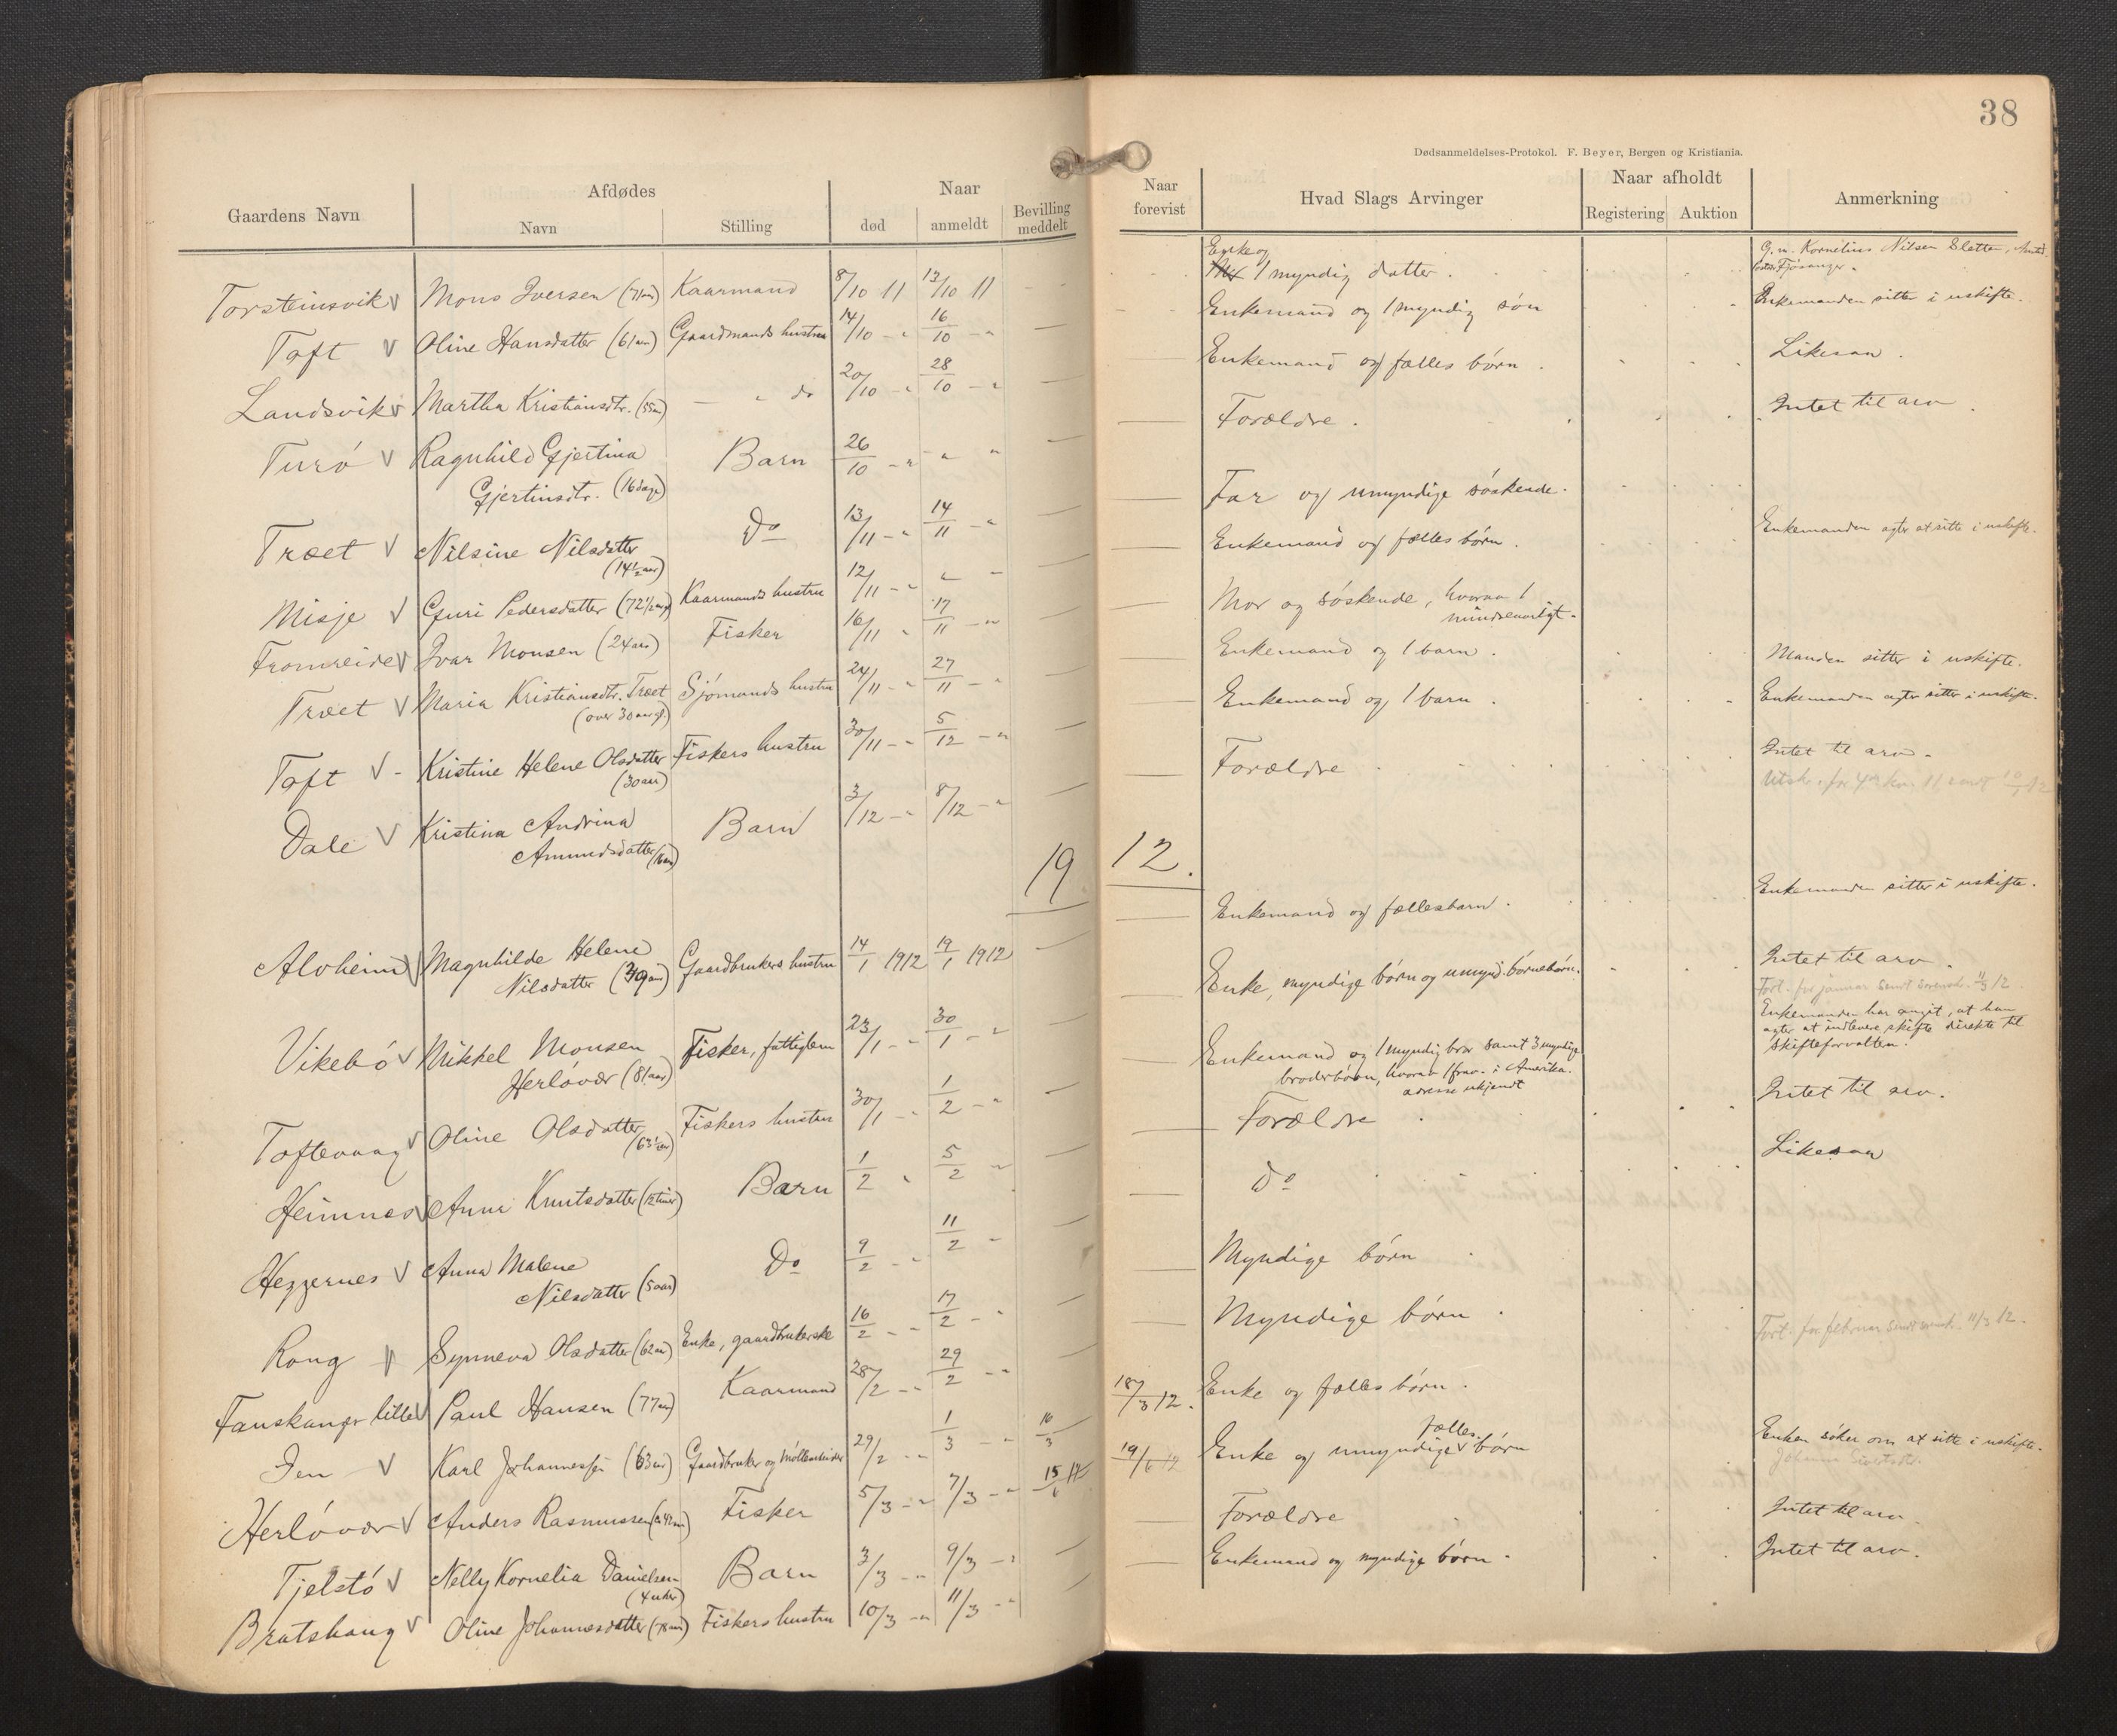 38
Dødsanmeldelses-Protokol. F. Beyer, Bergen og Kristiania.
Gaardens Navn
Afdødes
Navn
Stilling
Naar
død
anmeldt
Bevilling meddelt
Naar forevist
Hvad Slags Arvinger
Naar afholdt
Registering
Auktion
Anmerkning
Torsteinsvik v Mons Iversen (71 aar) Kaarmand 8/10 11 13/10 11
Enke og
1 myndig datter.
G. m. Kornelius Nilsen Sletten,
Fjøsanger.
Toft v Oline Hansdatter (61 aar) Gaardmands hustru 14/10 - " 16/10 - " — Enkemand og 1 myndig søn Enkemanden sitter i uskifte.
Landsvik v Martha Kristiansdtr. (55 aar) — " do 20/10 - " 28/10 - " — Enkemand og fælles børn. Likesaa.
Turø v Ragnhild Gjertina
Gjertinsdtr. (16 dage)
Barn 26/10 - " " " — Forældre. Intet til arv
Træet v Nilsine Nilsdatter
(14½ aar)
Do 13/11 - " 14/11 - " — Far og umyndige søskende.
Misje v Guri Pedersdatter (72½ aar) Kaarmands hustru 12/11 - " " - — Enkemand og fælles børn. Enkemanden agter at sitte i uskifte.
Fromreide v Ivar Monsen (24 aar) Fisker 16/11 " 17/11 - " — Mor og søskende, hvorav 1
mindreaarigt.
Træet v Maria Kristiansdtr. Træet
(over 30 aar gl.)
Sjømands hustru 24/11 - " 27/11 - " — Enkemand og 1 barn. Manden sitter i uskifte.
Toft v - Kristine Helene Olsdatter
(30 aar)
Fiskers hustru 30/11 - " 5/12 - " — Enkemand og 1 barn. Enkemanden agter sitter i uskifte.
Dale v Kristina Andrina
Amundsdatter
Barn 3/12 - " 8/12 - " — Forældre Intet til arv.
1912.
Alvheim v Magnhilde Helene
Nilsdatter
Gaardbrukers hustru 14/1 1912 19/1 1912 — Enkemand og fællesbarn. Enkemanden sitter i uskifte.
Vikebø v Mikkel Monsen
Herløvær (81 aar)
Fisker, fattiglem 23/1 - " 30/1 - " — Enke, myndige børn og umynd. børnebørn. Intet til arv.
Fort. for januar sendt sorensk. 11/3 12.
Toftevaag v Oline Olsdatter
(63½ aar)
Fiskers hustru 30/1 - " 1/2 - " — Enkemand og 1 myndig bror samt 3 myndige
broderbørn, hvorav 1 frav. i Amerika.
adresse ukjendt
Enkemanden har angit, at han
agter at indlevere skifte direkte til
skifteforvalten.
Heimnes v Anna Knutsdatter (12 timer) Barn 1/2 " 5/2 " — Forældre Intet til arv.
Heggernes v Anna Malene
Nilsdatter (5 aar)
Do 9/2 - " 11/2 - — Do Likesaa
Rong v Synneva Olsdatter (62 aar) Enke, gaardbrukerske 16/2 - " 17/2 - " — Myndige børn
Fanskanger lille v Paul Hansen (77 aar) Kaarmand 28/2 - " 29/2 - " — Myndige børn.
Fort. for februar sendt sorensk. 11/3 12.
Jen v Karl Johannessen (63 aar) Gaardbruker og Møllearbeider 29/2 - " 1/3 - " 16/3 18/3 12. Enke og fælles børn. Enken søker om at sitte i uskifte.
Herløvær v Anders Rasmussen Fisker 5/3 - " 7/3 - " 15/6 12 19/6 12 Enke og umyndige v børn
fælles
Tjelstø v Nelly Kornelia Danielsen
(4 uker)
Barn 3/3 - " 9/3 - " — Forældre Intet til arv.
Bratshaug v Oline Johannesdatter (78 aar) Fiskers hustru 10/3 - " 11/3 - " — Enkemand og myndige børn. Intet til arv.